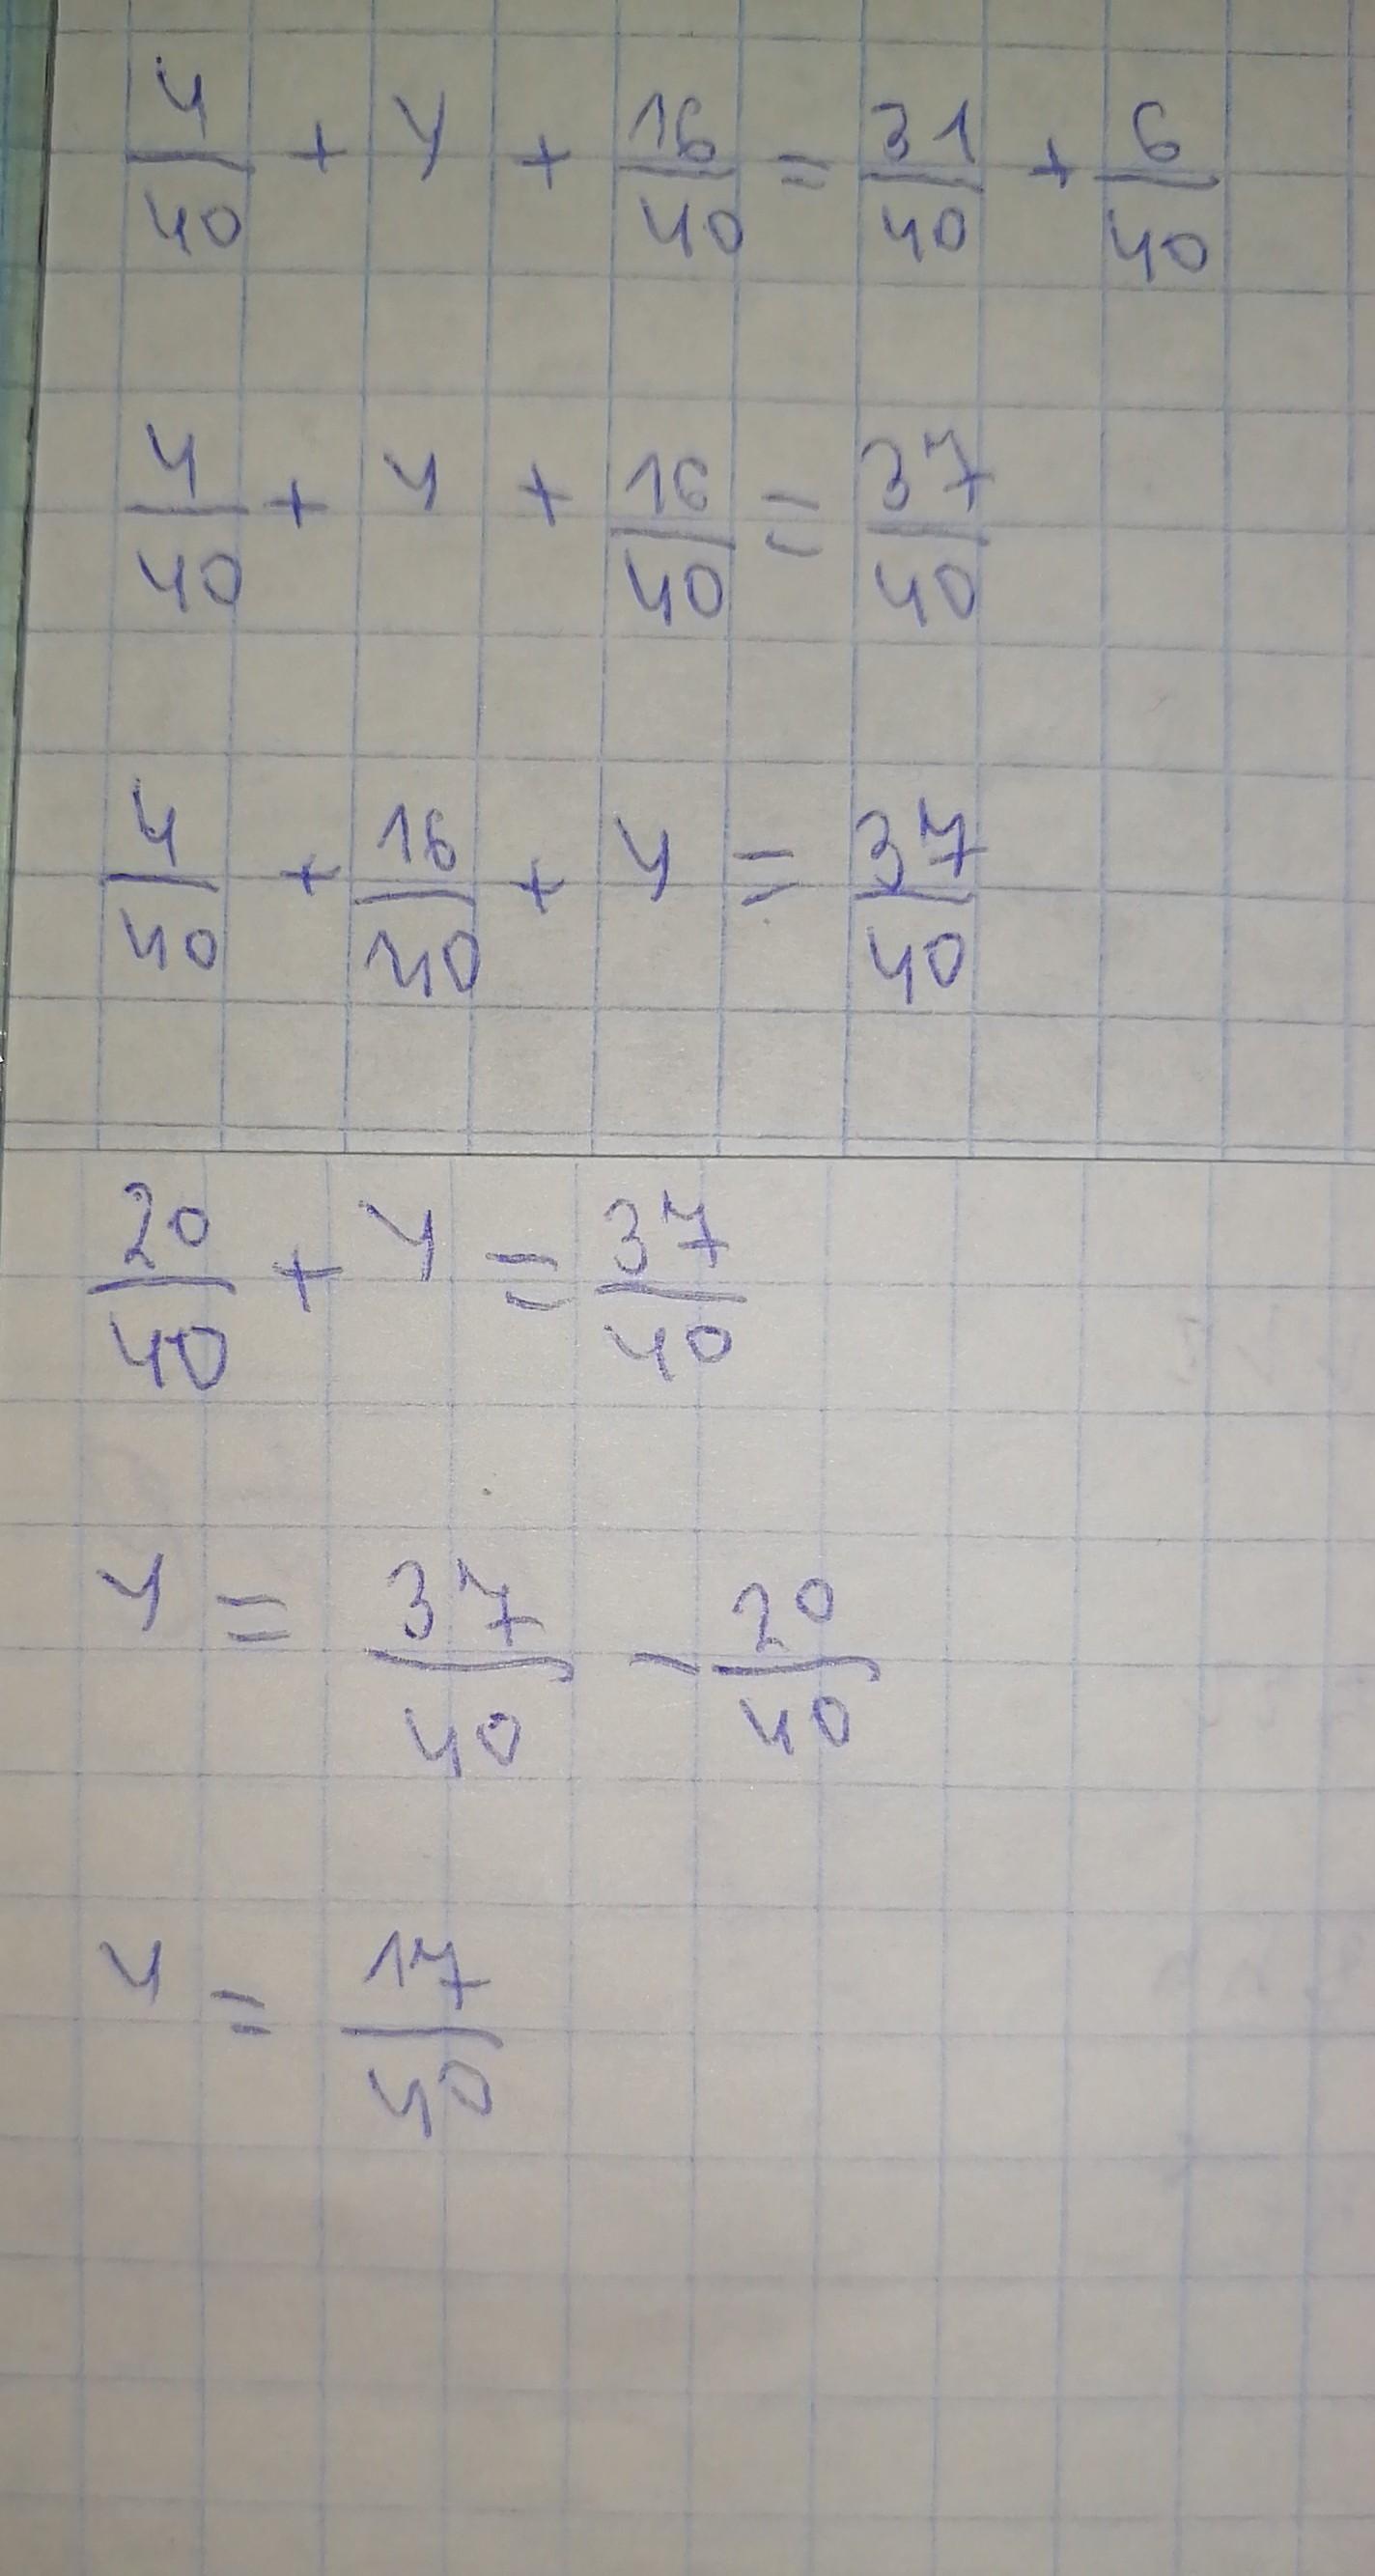 4/40 + y + 16/40 = 31/40 + 6/40
4/40 + y + 16/40 = 37/40
4/40 + 16/40 + y = 37/40
20/40 + y = 37/40
y = 37/40 - 20/40
y = 17/40